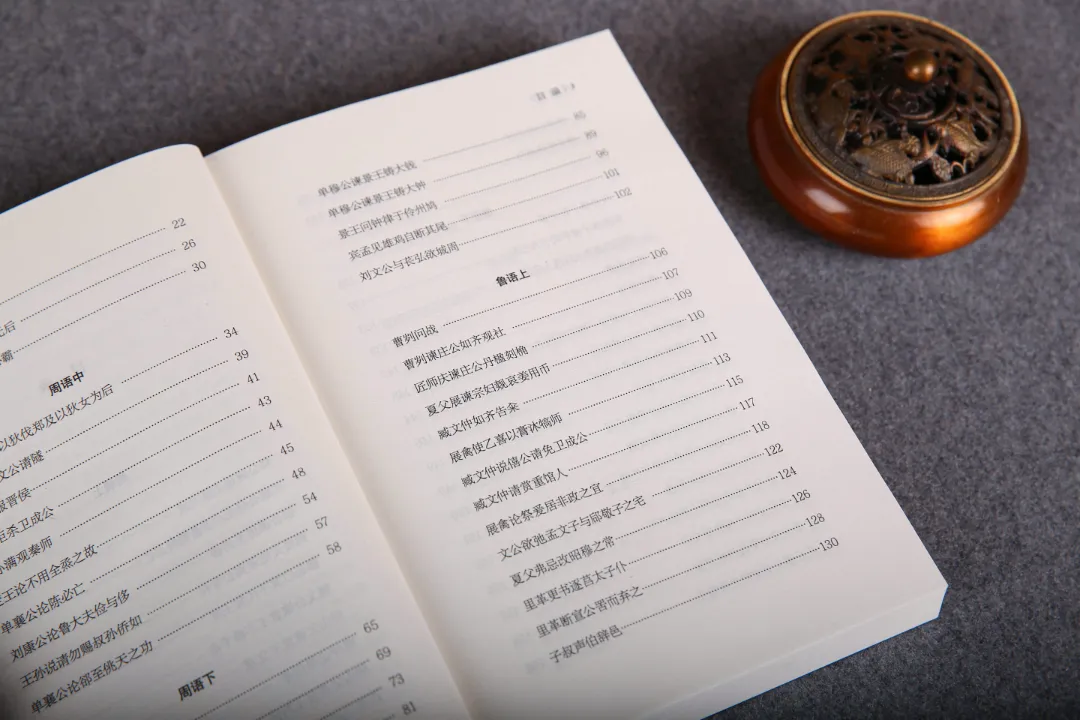 22
后 26
霸 30
周语中
以狄伐郑及以狄女为后 34
文公请隧 39
晋侯 41
杀卫成公 43
孙满观秦师 44
王论不用全烝之故 45
单襄公论陈必亡 48
刘康公论鲁大夫俭与侈 54
王孙说请勿赐叔孙侨如 57
单襄公论郤至佻天之功 58
周语下
65
69
73
81
目录
单穆公谏景王铸大钱 85
单穆公谏景王铸大钟 89
景王问钟律于伶州鸠 96
宾孟见雄鸡自断其尾 101
刘文公与苌弘欲城周 102
鲁语上
曹刿问战 106
曹刿谏庄公如齐观社 107
匠师庆谏庄公丹楹刻桷 109
夏父展谏宗妇觌哀姜用币 110
臧文仲如齐告籴 111
展禽使乙喜以膏沐犒师 113
臧文仲说僖公请免卫成公 115
臧文仲请赏重馆人 117
展禽论祭爰居非政之宜 118
文公欲弛孟文子与郈敬子之宅 122
夏父弗忌改昭穆之常 124
里革更书逐莒太子仆 126
里革断宣公罟而弃之 128
子叔声伯辞邑 130